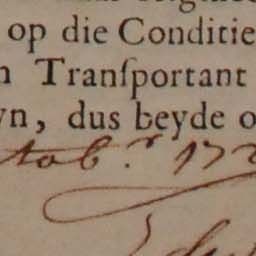 op die Conditie
n Tranſportant
yn, dus beyde o
tobr. 172